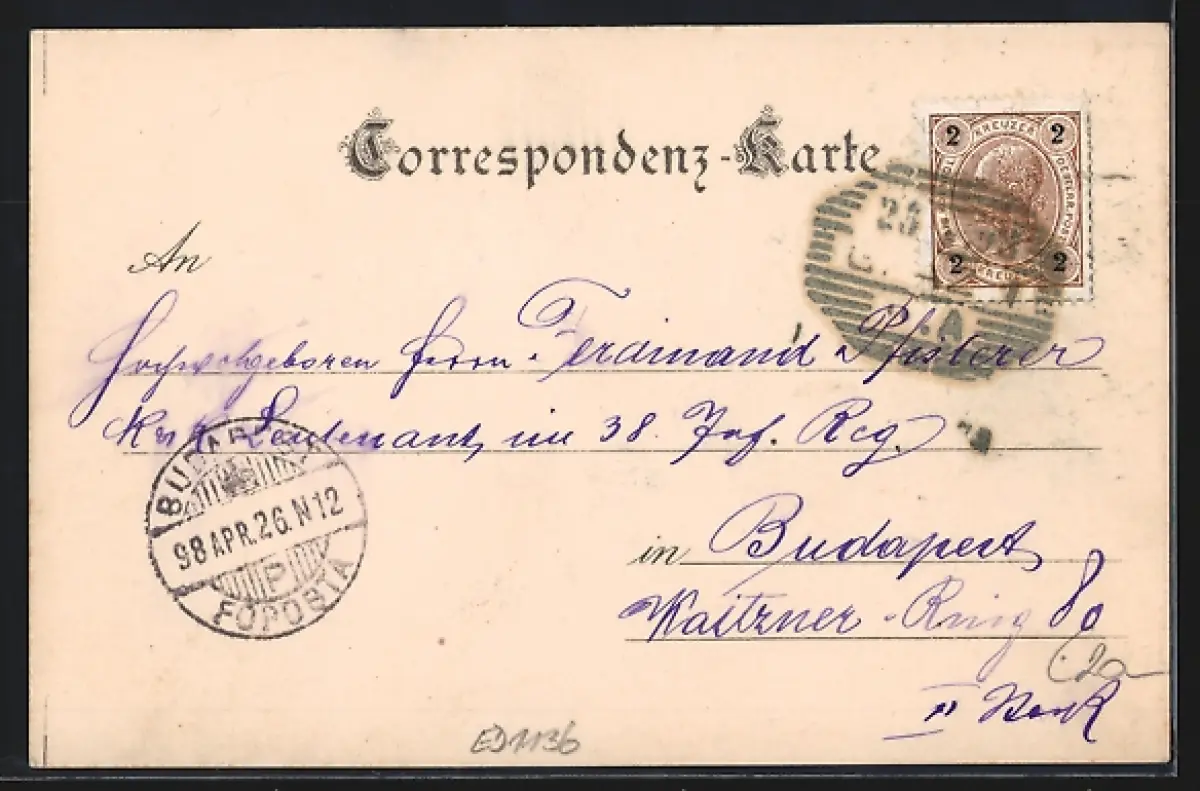 Correspondenz-Karte
2 KREUZER 2
2 KREUZER 2
An
Hochwohgeboren Herrn Ferdinand Pfisterer
Leutenant im 38. Inf. Reg.
in Budapest
Waitzner-Ring 80
II Stock
BUDAPEST
98 APR.26.N12
P
FŐPOSTA
20
ED1136